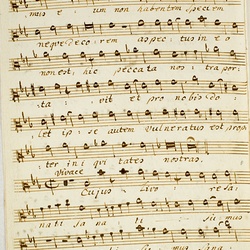 mus e um non habentem speciem
neque decorem aspectus in e o
non est, hic peccata nos: tra por:
ta: vit et pro nobis do:
let ip: se autem vulneratus est prop
ter ini qui tates nostras.
Vivace
Cujus Livo re sa:
nati sa na ti su mus